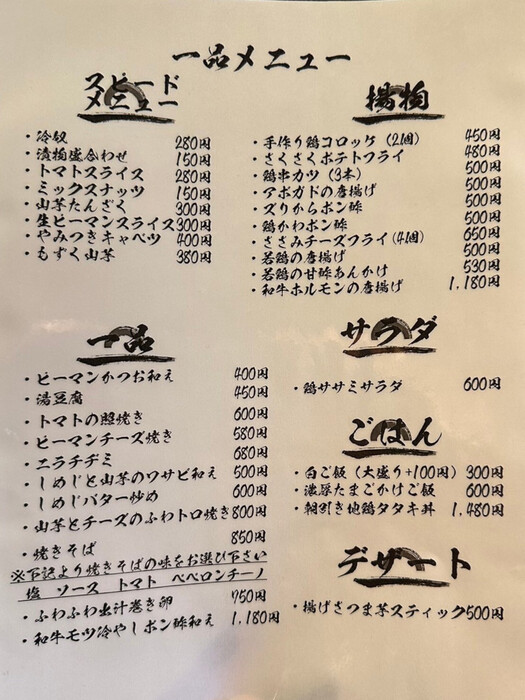 一品メニュー
スピード
メニュー
・冷奴 280円
・漬物盛合わせ 150円
・トマトスライス 280円
・ミックスナッツ 150円
・山芋たんざく 300円
・生ピーマンスライス 300円
・やみつきキャベツ 400円
・もずく山芋 380円
揚物
・手作り鶏コロッケ（2個） 450円
・さくさくポテトフライ 480円
・鶏串カツ（3本） 500円
・アボガドの唐揚げ 500円
・ズリからポン酢 500円
・鶏かわポン酢 500円
・ささみチーズフライ（4個） 650円
・若鶏の唐揚げ 500円
・若鶏の甘酢あんかけ 530円
・和牛ホルモンの唐揚げ 1,180円
一品
・ピーマンかつお和え 400円
・湯豆腐 450円
・トマトの照焼き 600円
・ピーマンチーズ焼き 580円
・ニラチヂミ 680円
・しめじと山芋のワサビ和え 500円
・しめじバター炒め 600円
・山芋とチーズのふわトロ焼き 800円
・焼きそば 850円
※下記より焼きそばの味をお選び下さい
塩 ソース トマト ペペロンチーノ
・ふわふわ出汁巻き卵 750円
・和牛モツ冷やしポン酢和え 1,180円
サラダ
・鶏ササミサラダ 600円
ごはん
・白ご飯（大盛り+100円） 300円
・濃厚たまごかけご飯 600円
・朝引き地鶏タタキ丼 1,480円
デザート
・揚げさつま芋スティック 500円